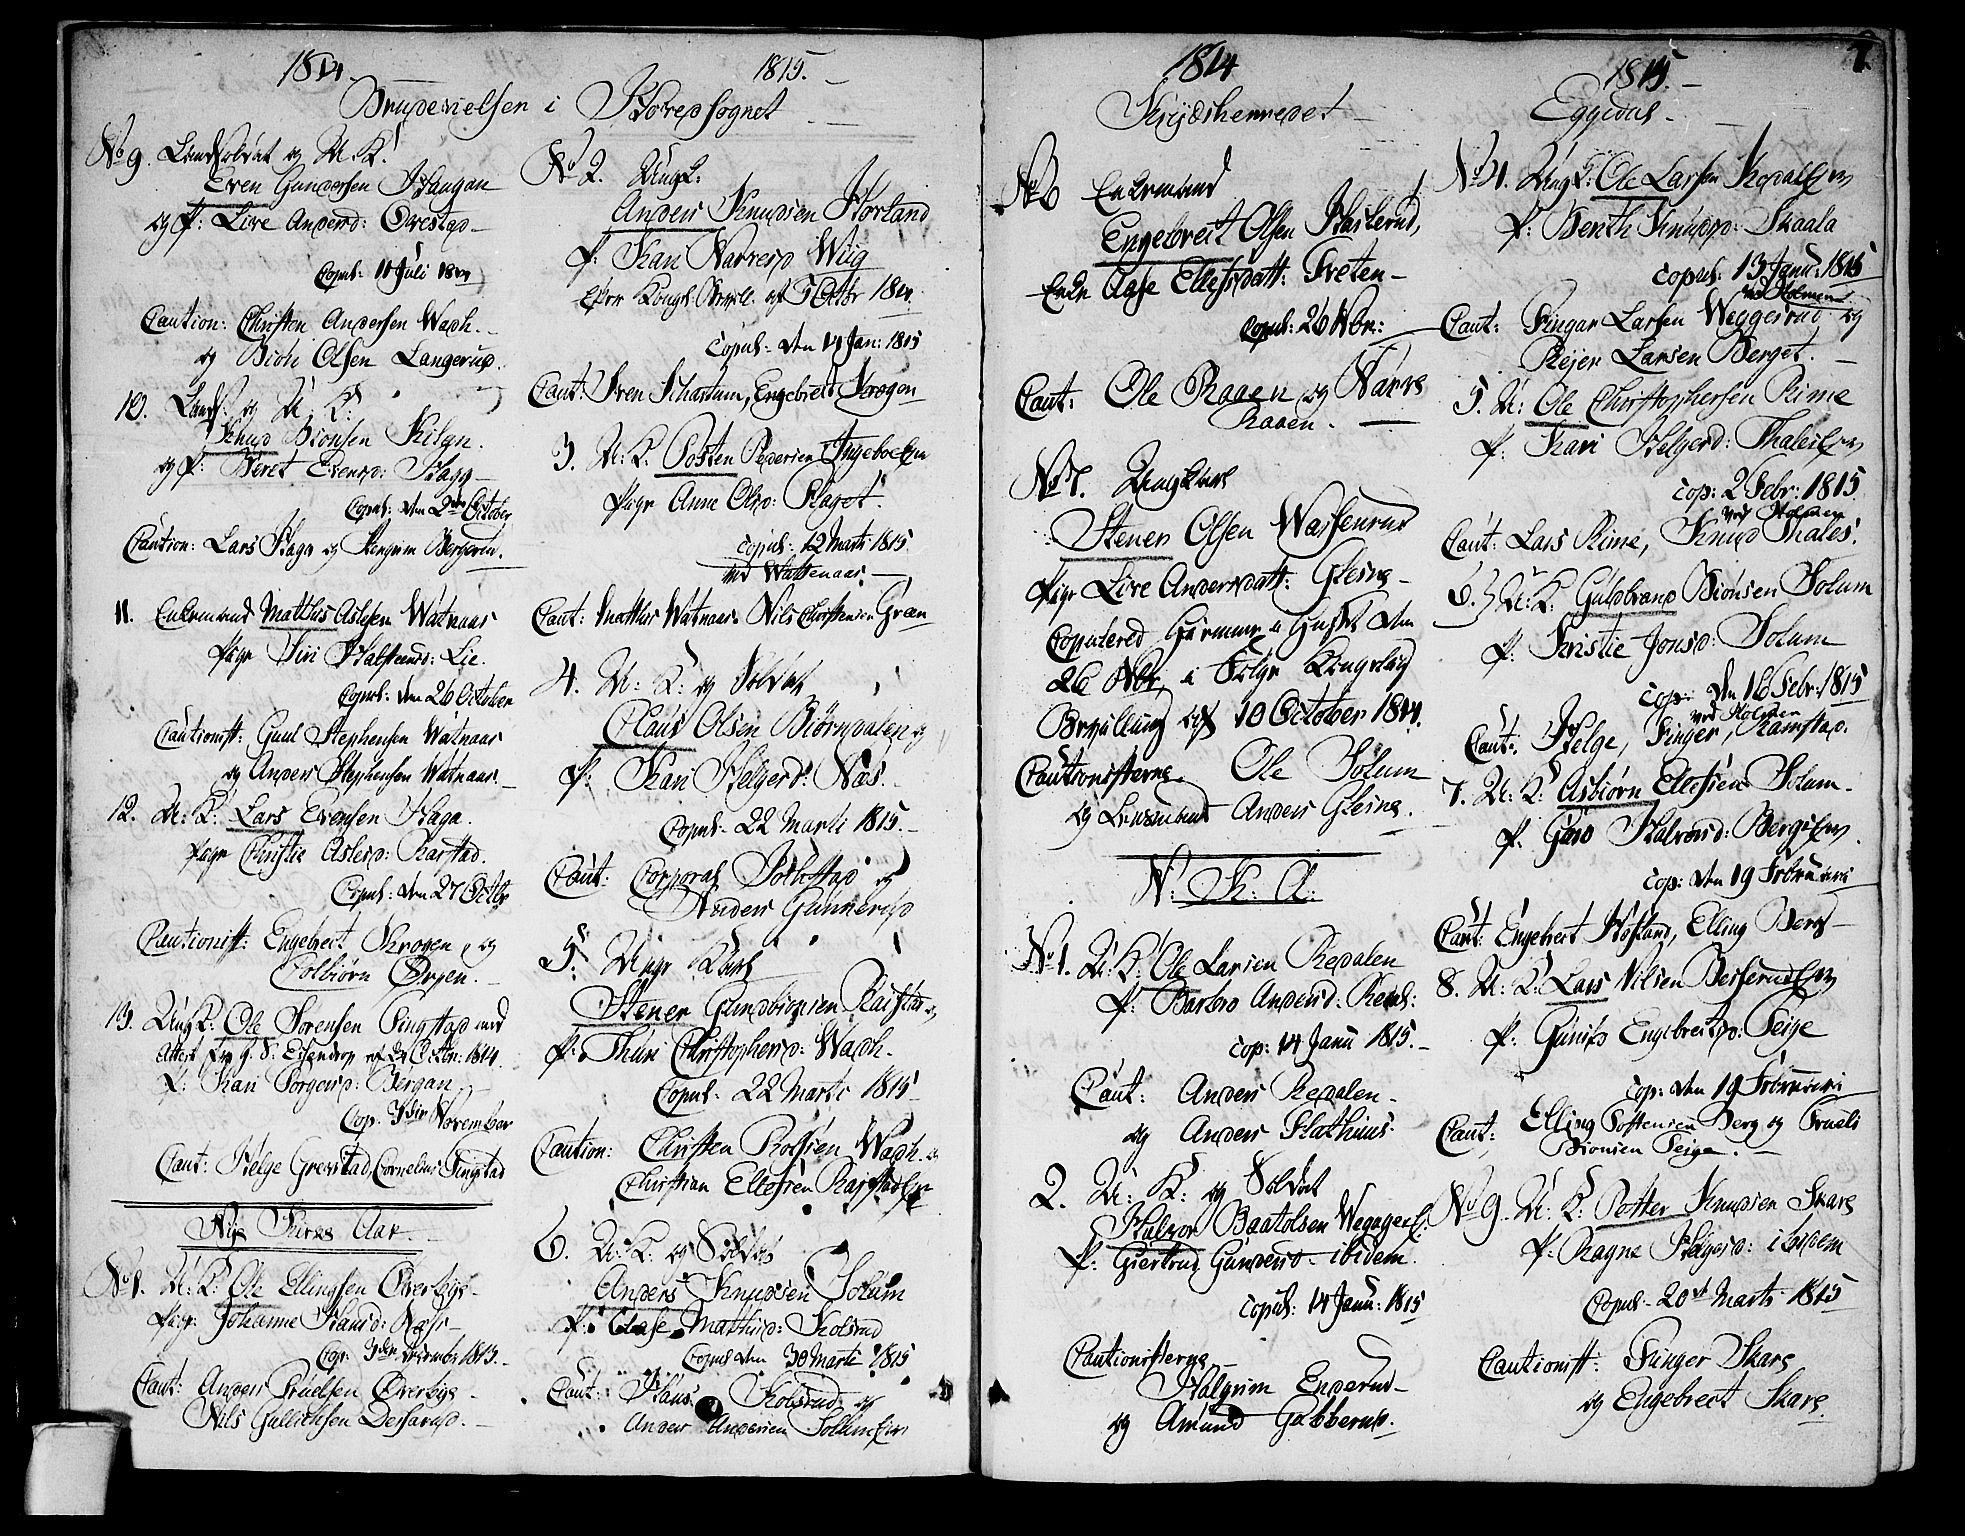 1814.
1815.
Brudevielsen i Hovedsognet
No 9. Landsoldat og U. K.
Even Gundersen Haugan
og P: Live Andersd: Ørestad
Copul: 11 Juli 1814
Caution: Christen Andersen Wadh.
og Biøn Olsen Langerud.
10. Lands: og U. K:
Knud Biønsen Kilgn.
og P: Beret Evensd: Hagg
Copul: den 2den October
Caution: Lars Haga og Bergerud.
11. Enkemand Matthis Aslesen Watnaas
Pige Siri Halsteensd: Lie.
Copul: den 26 October
Cautionist: Guul Stephensen Watnaas
og Anders Stephensen Watnaas.
12. U: K: Lars Evensen Haga.
Pige Christie Aslesd: Rastad.
Copul: den 27 Octbr
Cautionist: Engebrect Krogen, og
Colbiørn Ørpen.
13. Ung K: Ole Sørensen Singstad med
Attest fra af 24 Octbr: 1814.
P: Kari Torgersd: Bergan
Cop. 3die November
Caut: Helge Grevstad, Cornelius Singstad
Nye Kirke Aar.
No 1. U: K: Ole Ellingsen Overbye
Pige: Johanne Hansd: Næss
Cop: 3die December 1815.
Caut: Anders Truelsen Overbye
Nils Gullichsen Desserud.
No 2. Ung K:
Anders Knudsen Hørtand
P: Kari Narvesd Wiig
Efter Kongl. Bevill. af 5 Octbr 1814.
Copul: den 14 Jan: 1815
Caut: Iver Schartum, Engebrett Krogen
3. U: K: Posten Pedersen Ingeboe Ejer
Pige Anne Olsd: Haget.
copul: 12 Marts 1815
ved Wattenaas
Caut: Matthis Watnaas. Nils Christensen Gran
4. U: K: og Soldat
Claus Olsen Biørndalen og
P: Kari Helgesd: Næs.
Copul. 22 Marti 1815.
Caut: Corporal Sothstad og
Anders Gunnerud
5. Unge Karl
Stener Gundbiønsen Rastad og
P: Thuri Christophersd: Wadh.
Copul. 22 Marti 1815
Caution: Christen Rolfsen Wadh. og
Christian Ellefsen Rastad
6. U: K: og Soldat
Anders Knudsen Solum
P: Aase Matthisd: Kolsrud
Copul den 30 Marti 1815
Caut: Hans Kolsrud og
Anders Andersen Solum Eier
1814
1815.
7.
Krydsherredet
Eggedal
No 6 Enkemand
Engebrect Olsen Haslerud,
Enke Aase Ellefsdatt: Freten
Copul: 26 Nbr:
Caut: Ole Raaen og Narve
Raaen.
No 7. Ungkarl
Stener Olsen Wasserud
Pige Live Andersdatt: Glesne
Copulered hiemme i Huset den
26 Nbr, i Følge Kongelig
Bevilling af 10 October 1814.
Cautionisterne. Ole Solum
og Lensmand Anders Glesne.
N: K: A:
No 1. U: K: Ole Larsen Redalen
P: Barbro Andersd: Redal:
cop: 14 Janu 1815.
Caut: Anders Redalen
og Anders Flathuus.
2. U: K: og Soldat
Halvor Baatolsen
P: Giertrud Gundersd ibidem.
copul: 14 Janu: 1815
Cautionisterne
Halgrim Enderud
og Amund Gubberud.
No 4. Ung K: Ole Larsen Kopal Ejer
P: Berith Knudsd: Skaala
copul: 13 Janu: 1815
ved Holmen
Caut: Fingar Larsen Weggesrud og
Rejer Larsen Berget.
5. U: Ole Christophersen Rime
P: Kari Helgesd: Thales Ejer
cop: 2 Febr: 1815
ved Holmen
Caut: Lars Rime, Knud Thales.
6. U: K: Guldbrand Biønsen Solum
P: Kristie Jonsd: Solum
cop: den 16 Febr: 1815
ved Holmen
Caut: Helge, Finger, Ramstad.
7. U: K: Asbiørn Ellefsen Solum
P: Guro Halvorsd: Bergs Ejer
cop: den 19 Februari
Caut: Engebrect Hofland, Elling Berg
8. U: K: Lars Nilsen Besserud Ejer
P: Gunild Engebrectsd: Teige
cop: den 19 Februari
Caut: Elling Tostensen Berg og Truels
Biønsen Teige.
No 9. U: K: Potter Knudsen Skare
P: Ragne Helgesd: ibidem
Copul. 20de Marts 1815
Cautionist: Finger Skare
og Engebrect Skare.